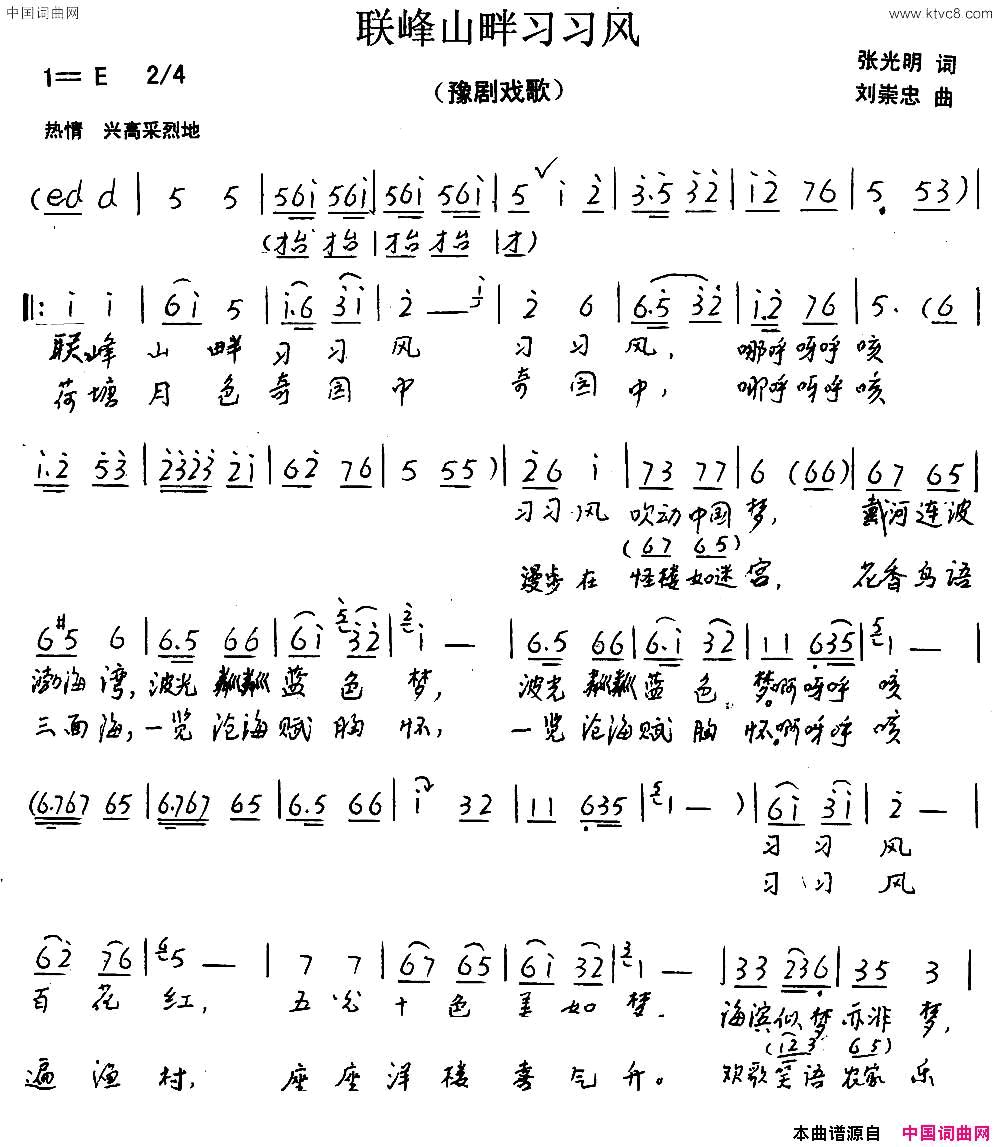 中国词曲网
www.ktvc8.com
联峰山畔习习风
1= E 2/4
(豫剧戏歌)
张光明 词
刘崇忠 曲
热情 兴高采烈地
(ed d | 5 5 | 561 561 | 561 561 | 5 1 2 | 3.5 32 | 12 76 | 5. 53) |
(抬抬 | 抬抬 | 才)
||: 1 1 | 61 5 | 1.6 31 | 2 — | 2 6 | 6.5 32 | 1.2 76 | 5. (6 |
联峰 山畔 习习风 习习风, 哪呼呀呼咳
荷塘月色奇园中 奇园中, 哪呼呀呼咳
1.2 53 | 2323 21 | 62 76 | 5 55) | 26 1 | 73 77 | 6 (66) | 67 65 |
习习风 吹动中国梦, 戴河连波
(67 65)
漫步在 怪楼如迷宫, 花香鸟语
6#5 6 | 6.5 66 | 61 32 | 1 — | 6.5 66 | 6.1 32 | 11 635 | 1 — |
渤海湾, 波光粼粼蓝色梦, 波光粼粼蓝色梦啊呀呼咳
三面海, 一览沧海赋胸怀, 一览沧海赋胸怀啊呀呼咳
(6.767 65 | 6.767 65 | 6.5 66 | 1 32 | 11 635 | 1 — ) | 61 31 | 2 — |
习习风
习习风
62 76 | 5 — | 7 7 | 67 65 | 61 32 | 1 — | 33 236 | 35 3 |
百花红, 五光十色美如梦. 海滨似梦亦非梦,
(123 65)
遍渔村, 座座洋楼喜气升。 欢歌笑语农家乐
本曲谱源自 中国词曲网